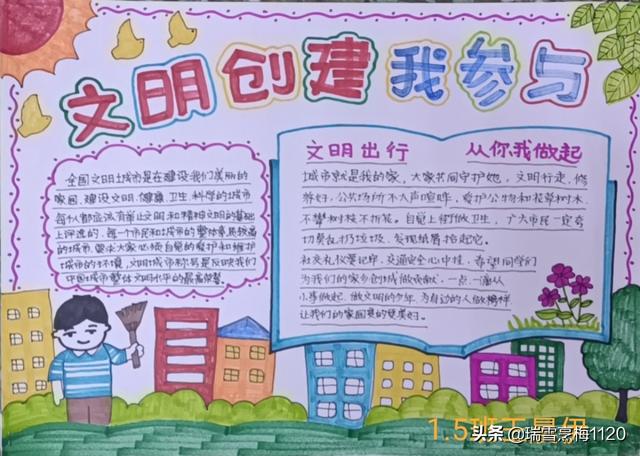 文明创建我参与
全国文明城市是在建设我们美丽的
家园,建设文明、健康、卫生、科学的城市
每个都应该有
文明和精神文明的基础
上评选的,每一个市民和城市的整体素质较高
的城市,要求大家必须自觉的爱护和维护
城市的环境,文明城市称号是反映我们
中国城市整体文明水平的最高荣誉。
文明出行 从你我做起
城市就是我的家,大家共同守护她,文明行走,修
养好,公共场所不大声喧哗,爱护公物和花草树木
不攀树枝不折花。自觉上街做卫生,广大市民一定要
切莫乱扔垃圾,发现纸屑拾起它。
社交礼仪要记牢,交通安全心中挂,希望同学们
为我们的家乡创城做贡献,一点一滴从
小事做起,做文明的少年,为身边的人做榜样
让我们的家园变的更美好。
1.5班王昱伊
头条 @瑞雪亮梅1120